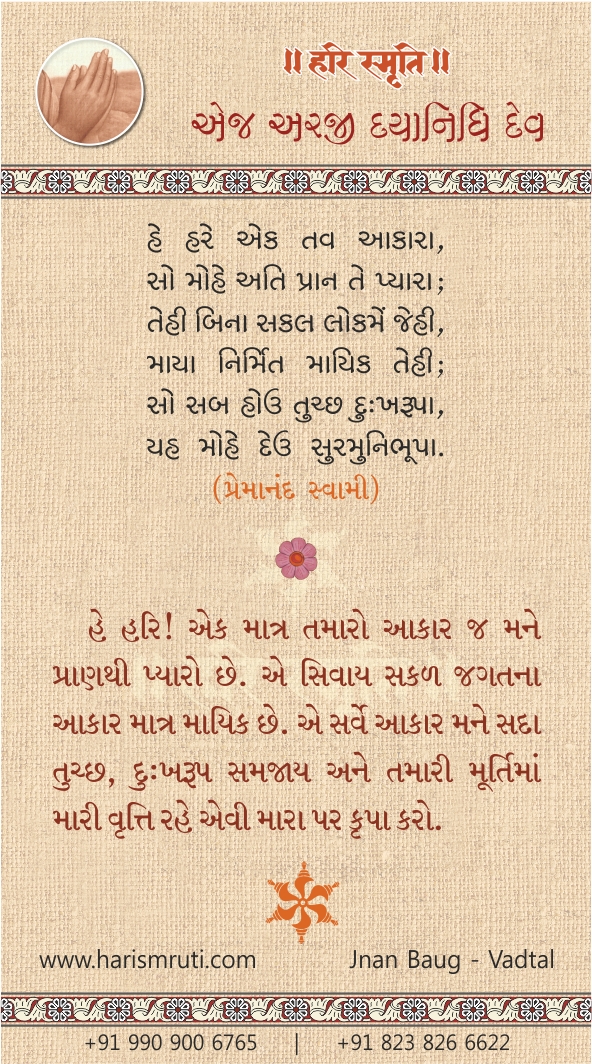 ॥ हरि स्मृति ॥
એજ અરજી દયાનિધિ દેવ
હે હરે એક તવ આકારા,
સો મોહે અતિ પ્રાન તે પ્યારા;
તેહી બિના સકલ લોકમેં જેહી,
માયા નિર્મિત માયિક તેહી;
સો સબ હોઉ તુચ્છ દુઃખરૂપા,
યહ મોહે દેઉ સુરમુનિભૂપા.
(પ્રેમાનંદ સ્વામી)
હે હરિ! એક માત્ર તમારો આકાર જ મને
પ્રાણથી પ્યારો છે. એ સિવાય સકળ જગતના
આકાર માત્ર માયિક છે. એ સર્વે આકાર મને સદા
તુચ્છ, દુઃખરૂપ સમજાય અને તમારી મૂર્તિમાં
મારી વૃત્તિ રહે એવી મારા પર કૃપા કરો.
www.harismruti.com Jnan Baug - Vadtal
+91 990 900 6765 | +91 823 826 6622